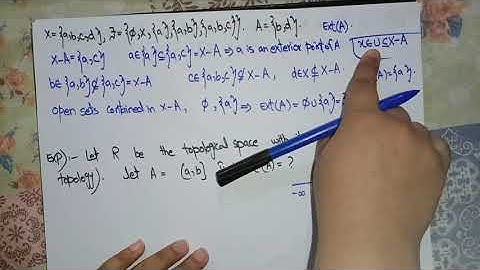 X = {a,b,c,d}, J = {ϕ, X, {a}, {a,b}, {a,b,c}}. A = {b,d}. Ext(A).
X-A = {a,c} a∈{a}⊆{a,c} = X-A ⇒ a is an exterior point of A x∈U⊆X-A
b∈{a,b}⊈{a,c} = X-A c∈{a,b,c}⊈X-A, d∈X⊈X-A
open sets contained in X-A, ϕ, {a} ⇒ Ext(A) = ϕ∪{a} = {a}.
Ex(P):- Let R be the topological space with
topology). Let A = [a,b] (A) = ?
-∞